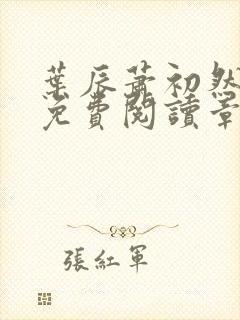 葉辰蕭初然
免費閱讀章
張紅軍